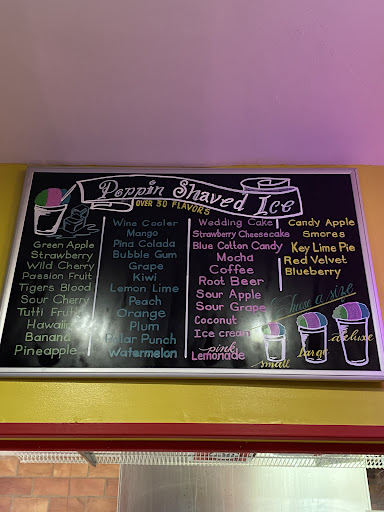 Poppin Shaved Ice
OVER 30 FLAVORS
Green Apple
Strawberry
Wild Cherry
Passion Fruit
Tigers Blood
Sour Cherry
Tutti Frutti
Hawaiian
Banana
Pineapple
Wine Cooler
Mango
Pina Colada
Bubble Gum
Grape
Kiwi
Lemon Lime
Peach
Orange
Plum
Polar Punch
Watermelon
Wedding Cake
Strawberry Cheesecake
Blue Cotton Candy
Mocha
Coffee
Root Beer
Sour Apple
Sour Grape
Coconut
Ice cream
pink
Lemonade
Candy Apple
Smores
Key Lime Pie
Red Velvet
Blueberry
Choose a size
small
Large
deluxe